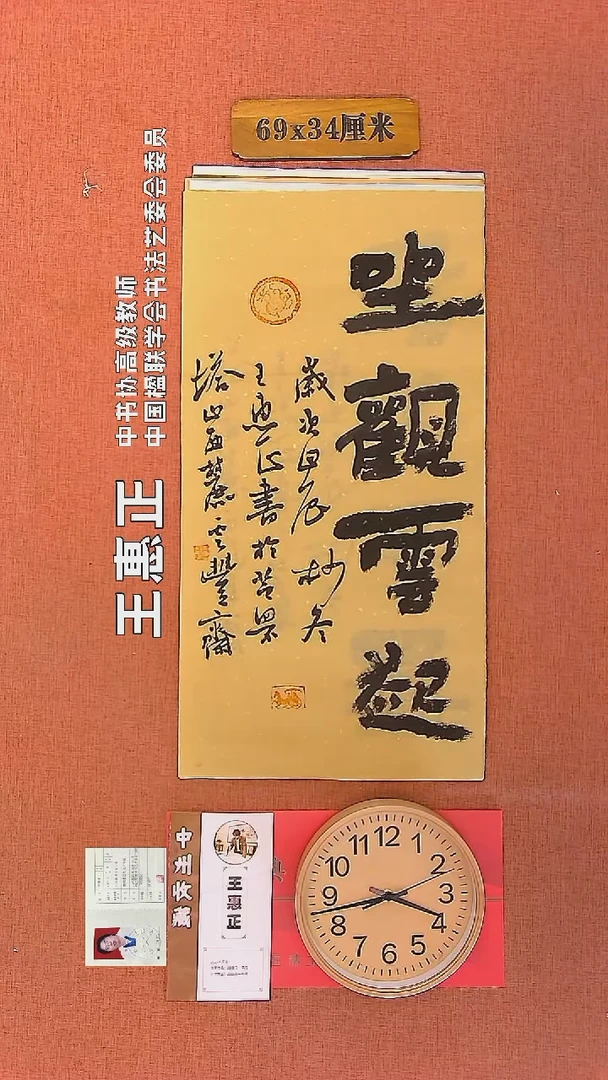 69x34厘米
中书协高级教师
中国楹联学会书法艺委会委员
王惠正
坐觀雲起
歲次甲辰杪冬
王惠正書於
塔山西麓雲豐齋
中州收藏
王惠正
12
1
2
3
4
5
6
7
8
9
10
11